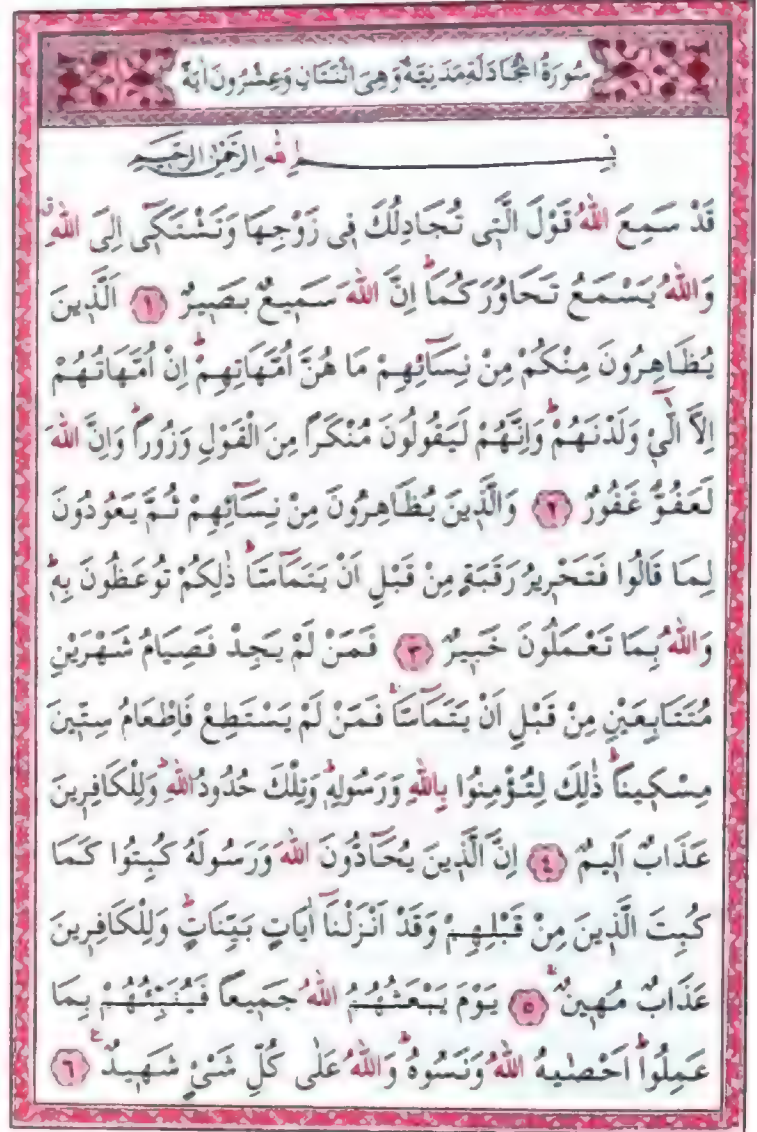 سُورَةُ الْمُجَادَلَةِ مَدَنِيَّةٌ وَهِيَ اثْنَتَانِ وَعِشْرُونَ اٰيَةً
بِسْمِ اللّٰهِ الرَّحْمٰنِ الرَّحِيمِ
قَدْ سَمِعَ اللّٰهُ قَوْلَ الَّتٖى تُجَادِلُكَ فٖى زَوْجِهَا وَتَشْتَكٖٓى اِلَى اللّٰهِۗ
وَاللّٰهُ يَسْمَعُ تَحَاوُرَكُمَاۜ اِنَّ اللّٰهَ سَمٖيعٌ بَصٖيرٌ ﴿١﴾ اَلَّذٖينَ
يُظَاهِرُونَ مِنْكُمْ مِنْ نِسَٓائِهِمْ مَا هُنَّ اُمَّهَاتِهِمْۜ اِنْ اُمَّهَاتُهُمْ
اِلَّا الّٰٓـٖٔى وَلَدْنَهُمْۜ وَاِنَّهُمْ لَيَقُولُونَ مُنْكَراً مِنَ الْقَوْلِ وَزُوراًۜ وَاِنَّ اللّٰهَ
لَعَفُوٌّ غَفُورٌ ﴿٢﴾ وَالَّذٖينَ يُظَاهِرُونَ مِنْ نِسَٓائِهِمْ ثُمَّ يَعُودُونَ
لِمَا قَالُوا فَتَحْرٖيرُ رَقَبَةٍ مِنْ قَبْلِ اَنْ يَتَمَٓاسَّاۜ ذٰلِكُمْ تُوعَظُونَ بِهٖۜ
وَاللّٰهُ بِمَا تَعْمَلُونَ خَبٖيرٌ ﴿٣﴾ فَمَنْ لَمْ يَجِدْ فَصِيَامُ شَهْرَيْنِ
مُتَتَابِعَيْنِ مِنْ قَبْلِ اَنْ يَتَمَٓاسَّاۚ فَمَنْ لَمْ يَسْتَطِعْ فَاِطْعَامُ سِتّٖينَ
مِسْكٖيناًۜ ذٰلِكَ لِتُؤْمِنُوا بِاللّٰهِ وَرَسُولِهٖۜ وَتِلْكَ حُدُودُ اللّٰهِۜ وَلِلْكَافِرٖينَ
عَذَابٌ اَلٖيمٌ ﴿٤﴾ اِنَّ الَّذٖينَ يُحَٓادُّونَ اللّٰهَ وَرَسُولَهُ كُبِتُوا كَمَا
كُبِتَ الَّذٖينَ مِنْ قَبْلِهِمْ وَقَدْ اَنْزَلْنَٓا اٰيَاتٍ بَيِّنَاتٍۜ وَلِلْكَافِرٖينَ
عَذَابٌ مُهٖينٌۚ ﴿٥﴾ يَوْمَ يَبْعَثُهُمُ اللّٰهُ جَمٖيعاً فَيُنَبِّئُهُمْ بِمَا
عَمِلُواۜ اَحْصٰيهُ اللّٰهُ وَنَسُوهُۜ وَاللّٰهُ عَلٰى كُلِّ شَیْءٍ شَهٖيدٌۚ ﴿٦﴾